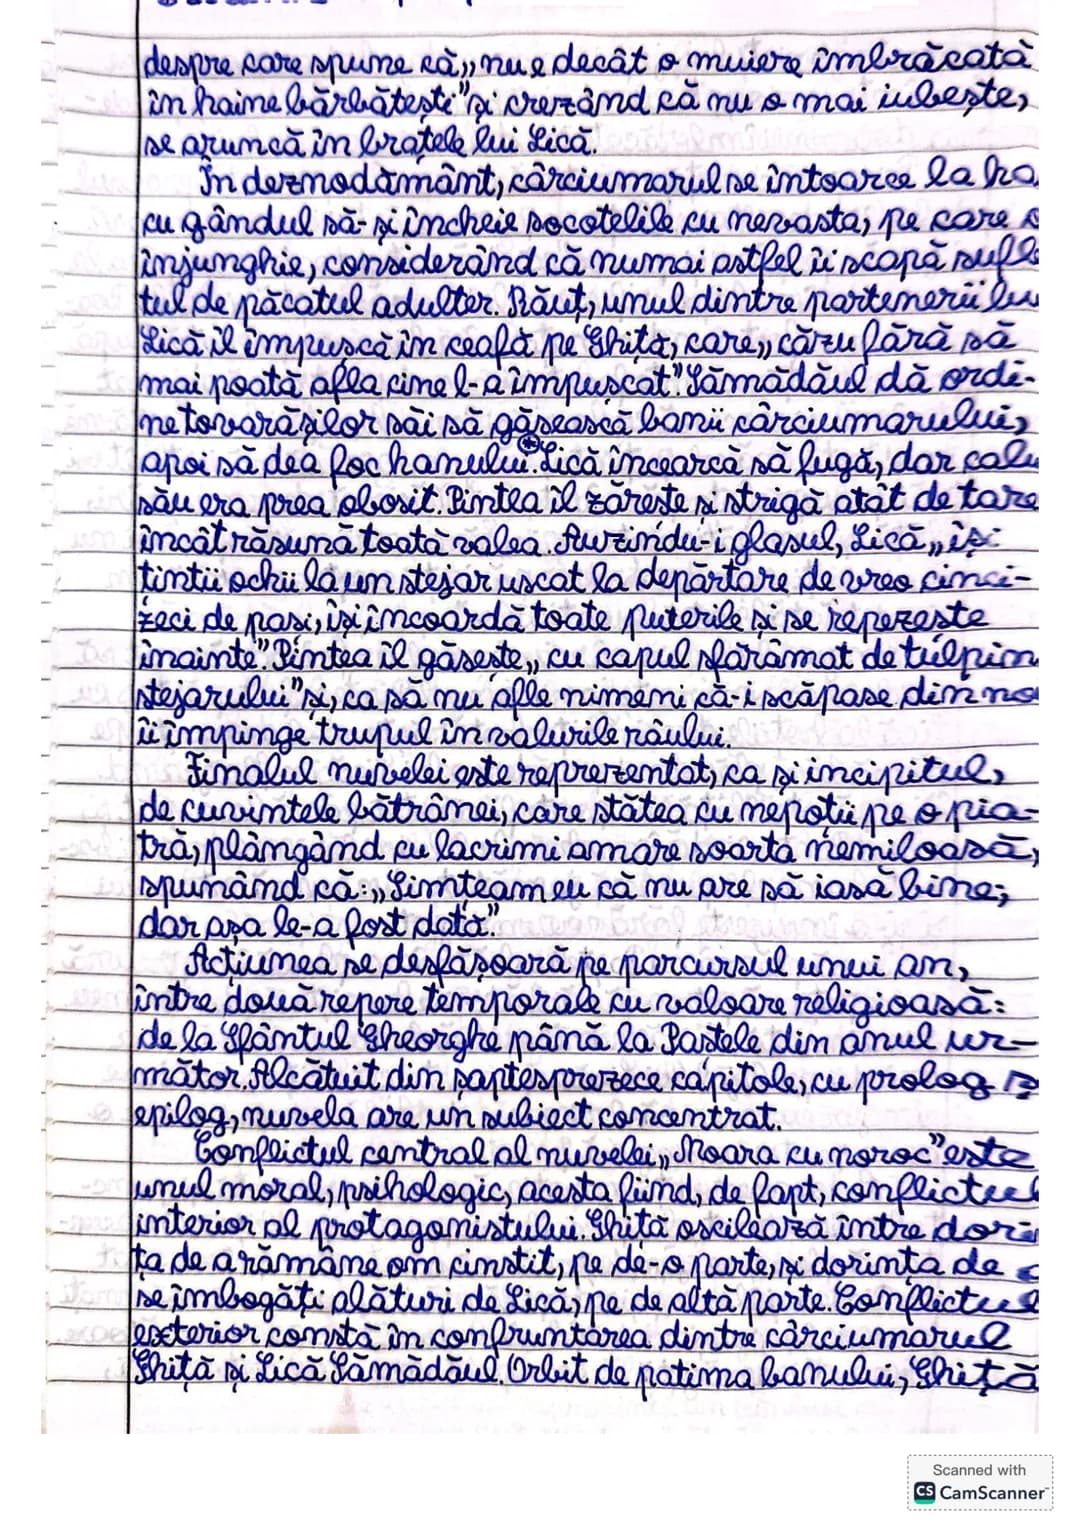 despre care spune că „nu e decât o muiere îmbrăcată
în haine bărbătești" și crezând că nu o mai iubește,
se aruncă în brațele lui Lică.
În deznodământ, cârciumarul se întoarce la ha
cu gândul să-și încheie socotelile cu nevasta, pe care o
înjunghie, considerând că numai astfel îi scapă sufle
tul de păcatul adulter. Răuț, unul dintre partenerii lui
Lică îl împușcă în ceafă pe Ghiță, care „căzu fără să
mai poată afla cine l-a împușcat". Sămădăul dă ordi-
ne tovarășilor săi să găsească banii cârciumarului,
apoi să dea foc hanului. Lică încearcă să fugă, dar calu
său era prea obosit. Pintea îl zărește și strigă atât de tare
încât răsună toată valea. Auzindu-i glasul, Lică „își
țintii ochii la un stejar uscat la depărtare de vreo cinci-
zeci de pași, își încoardă toate puterile și se repezește
înainte". Pintea îl găsește „cu capul sfărâmat de tulpin
stejarului" și, ca să nu afle nimeni că-i scăpase din no
îi împinge trupul în valurile râului.
Finalul nuvelei este reprezentat, ca și incipitul,
de cuvintele bătrânei, care stătea cu nepoții pe o pia-
tră, plângând cu lacrimi amare soarta nemiloasă,
spunând că: „Simțeam eu că nu are să iasă bine;
dar așa le-a fost dată".
Acțiunea se desfășoară pe parcursul unui an,
între două repere temporale cu valoare religioasă:
de la Sfântul Gheorghe până la Paștele din anul ur-
mător. Alcătuit din șaptesprezece capitole, cu prolog și
epilog, nuvela are un subiect concentrat.
Conflictul central al nuvelei „Moara cu noroc" este
unul moral, psihologic, acesta fiind, de fapt, conflictul
interior al protagonistului. Ghiță oscilează între dorin
ța de a rămâne om cinstit, pe de-o parte, și dorința de a
se îmbogăți alături de Lică, pe de altă parte. Conflictul
exterior constă în confruntarea dintre cârciumarul
Ghiță și Lică Sămădăul. Orbit de patima banului, Ghiță
Scanned with
CS CamScanner